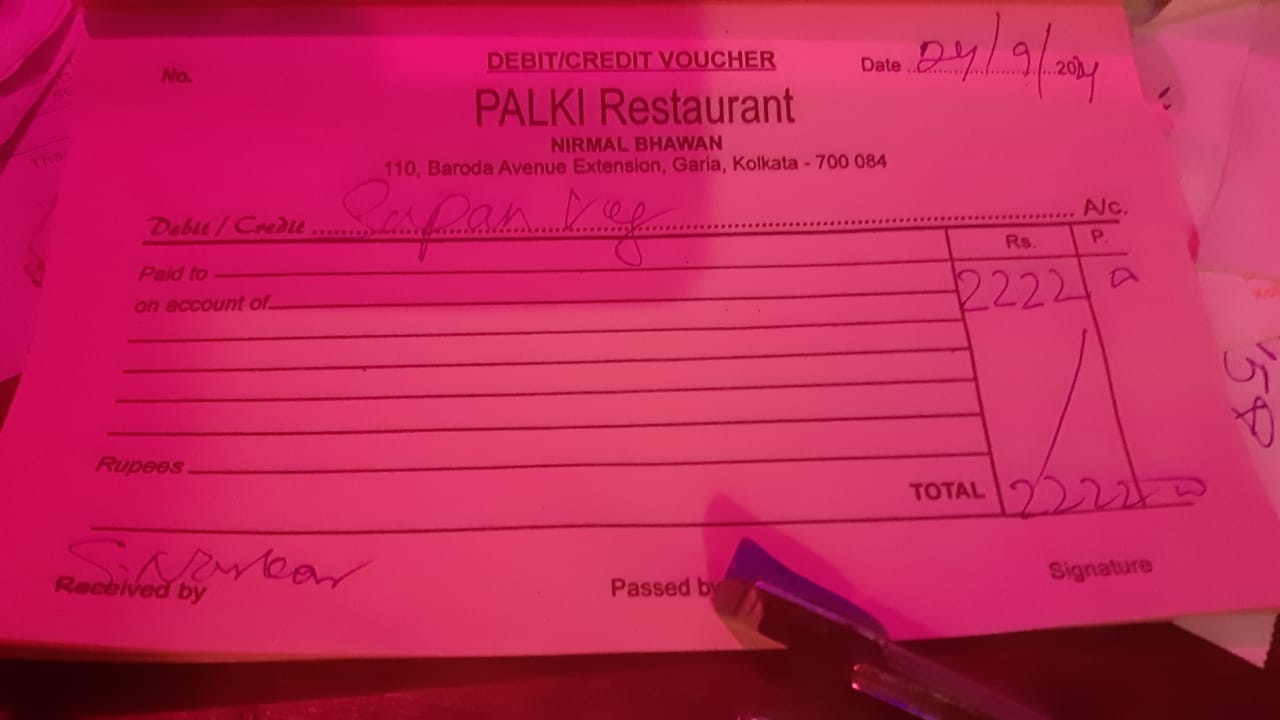 DEBIT/CREDIT VOUCHER
No.
Date 24/9/2024
PALKI Restaurant
NIRMAL BHAWAN
110, Baroda Avenue Extension, Garia, Kolkata - 700 084
Debit / Credit Papan Veg A/c.
Rs. P.
Paid to 2222
on account of
Rupees
TOTAL 2222
S. Naskar
Received by
Passed by
Signature
158